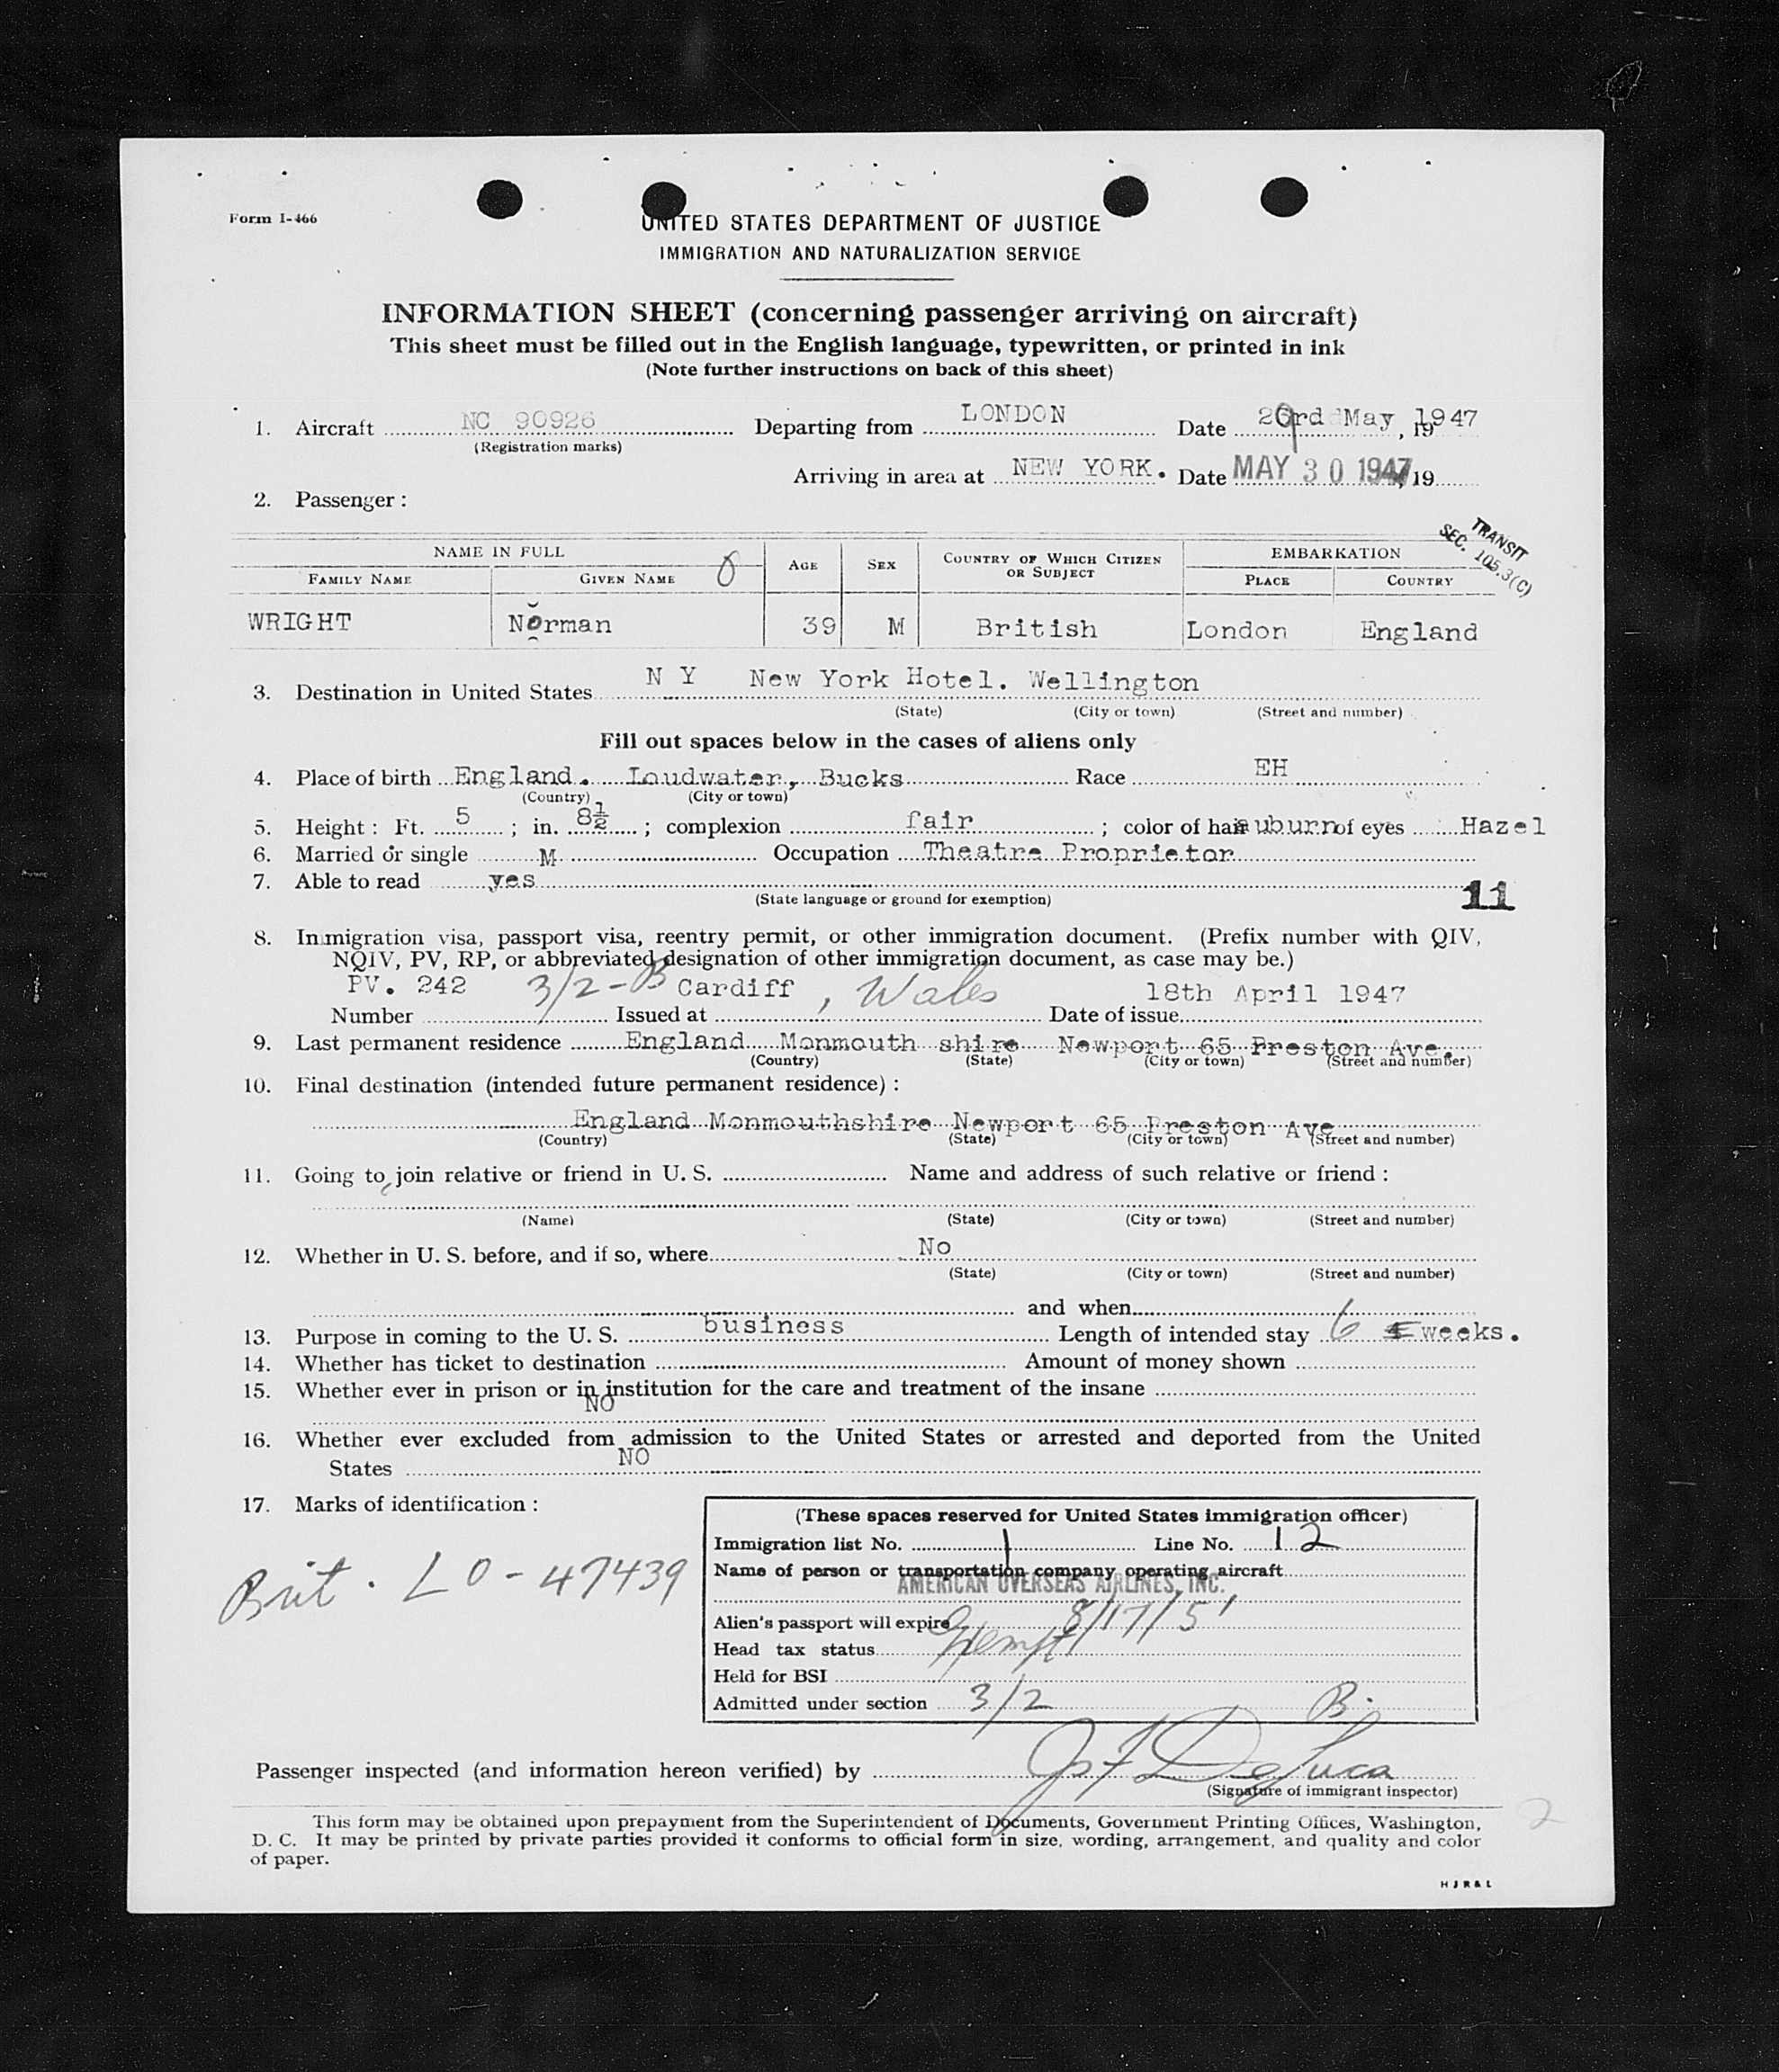 Form I-466
UNITED STATES DEPARTMENT OF JUSTICE
IMMIGRATION AND NATURALIZATION SERVICE
INFORMATION SHEET (concerning passenger arriving on aircraft)
This sheet must be filled out in the English language, typewritten, or printed in ink
(Note further instructions on back of this sheet)
1. Aircraft NC 90926 Departing from LONDON Date 29rd May, 1947
(Registration marks)
Arriving in area at NEW YORK. Date MAY 30 1947, 19
2. Passenger :
TRANSIT
SEC. 105.3(C)
NAME IN FULL AGE SEX COUNTRY OF WHICH CITIZEN OR SUBJECT EMBARKATION
FAMILY NAME GIVEN NAME PLACE COUNTRY
WRIGHT Norman 39 M British London England
3. Destination in United States N Y New York Hotel. Wellington
(State) (City or town) (Street and number)
Fill out spaces below in the cases of aliens only
4. Place of birth England. Loudwater, Bucks Race EH
(Country) (City or town)
5. Height : Ft. 5 ; in. 8½ ; complexion fair ; color of hair auburn of eyes Hazel
6. Married or single M Occupation Theatre Proprietor
7. Able to read yes
(State language or ground for exemption)
11
8. Immigration visa, passport visa, reentry permit, or other immigration document. (Prefix number with QIV,
NQIV, PV, RP, or abbreviated designation of other immigration document, as case may be.)
PV. 242 3/2-B Cardiff, Wales 18th April 1947
Number Issued at Date of issue
9. Last permanent residence England Monmouth shire Newport 65 Preston Ave.
(Country) (State) (City or town) (Street and number)
10. Final destination (intended future permanent residence) :
England Monmouthshire Newport 65 Preston Ave
(Country) (State) (City or town) (Street and number)
11. Going to join relative or friend in U. S. Name and address of such relative or friend :
(Name) (State) (City or town) (Street and number)
12. Whether in U. S. before, and if so, where No
(State) (City or town) (Street and number)
and when
13. Purpose in coming to the U. S. business Length of intended stay 6 weeks.
14. Whether has ticket to destination Amount of money shown
15. Whether ever in prison or in institution for the care and treatment of the insane
NO
16. Whether ever excluded from admission to the United States or arrested and deported from the United
States NO
17. Marks of identification :
Brit. LO-47439
(These spaces reserved for United States immigration officer)
Immigration list No. 1 Line No. 12
Name of person or transportation company operating aircraft
AMERICAN OVERSEAS AIRLINES, INC.
Alien's passport will expire 8/17/51
Head tax status Exempt
Held for BSI
Admitted under section 3/2 B.
Passenger inspected (and information hereon verified) by Jos F DeLuca
(Signature of immigrant inspector)
This form may be obtained upon prepayment from the Superintendent of Documents, Government Printing Offices, Washington,
D. C. It may be printed by private parties provided it conforms to official form in size, wording, arrangement, and quality and color
of paper.
2
H J R & L